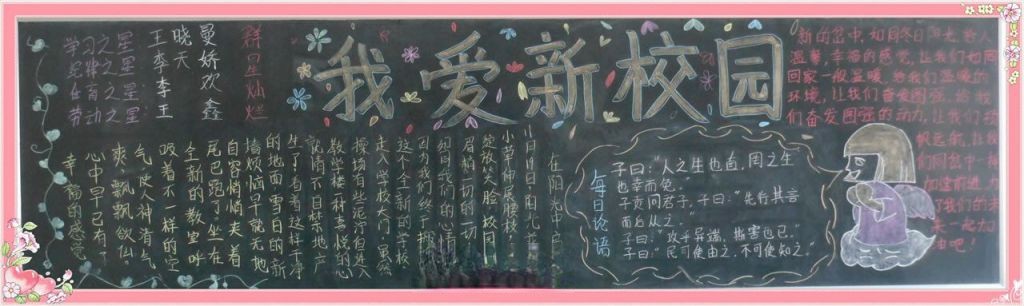 我爱新校园
群星灿烂
曼娇欢鑫
晓天
王李李王
学习之星:
纪律之星:
体育之星:
劳动之星:
每日论语
子曰:“人之生也直,罔之生
也幸而免。”
子贡问君子,子曰:“先行其言
而后从之。”
子曰:“攻乎异端,斯害也已。”
子曰:“民可使由之,不可使知之。”
在阳光中
小草伸展腰枝,
绽放笑脸,校园
眉梢一切的一切
如同我们的心情
因为我们终于拥
这个全新的学校
走入学校大门,虽然
操场有些泥泞但进入
教学楼一种喜悦的心
就情不自禁地产
生了,看着这样干净
的地面,雪白的新
墙烦恼早就无
自容悄悄夹着
尾巴跑了,坐在
全新的教室呼
吸着不一样的空
气,使人神清气
爽,飘飘欲仙
心中早已有了
幸福的感觉
新的岔中,如同冬日阳光,给人
温馨,幸福的感觉,让我们如同
回家一般温暖,给我们温暖的
环境,让我们奋发图强,给我
们奋发图强的动力,让我们
帆远航,让我
们同岔中一
加速前进,为
了我们的未
来一起加
油吧!